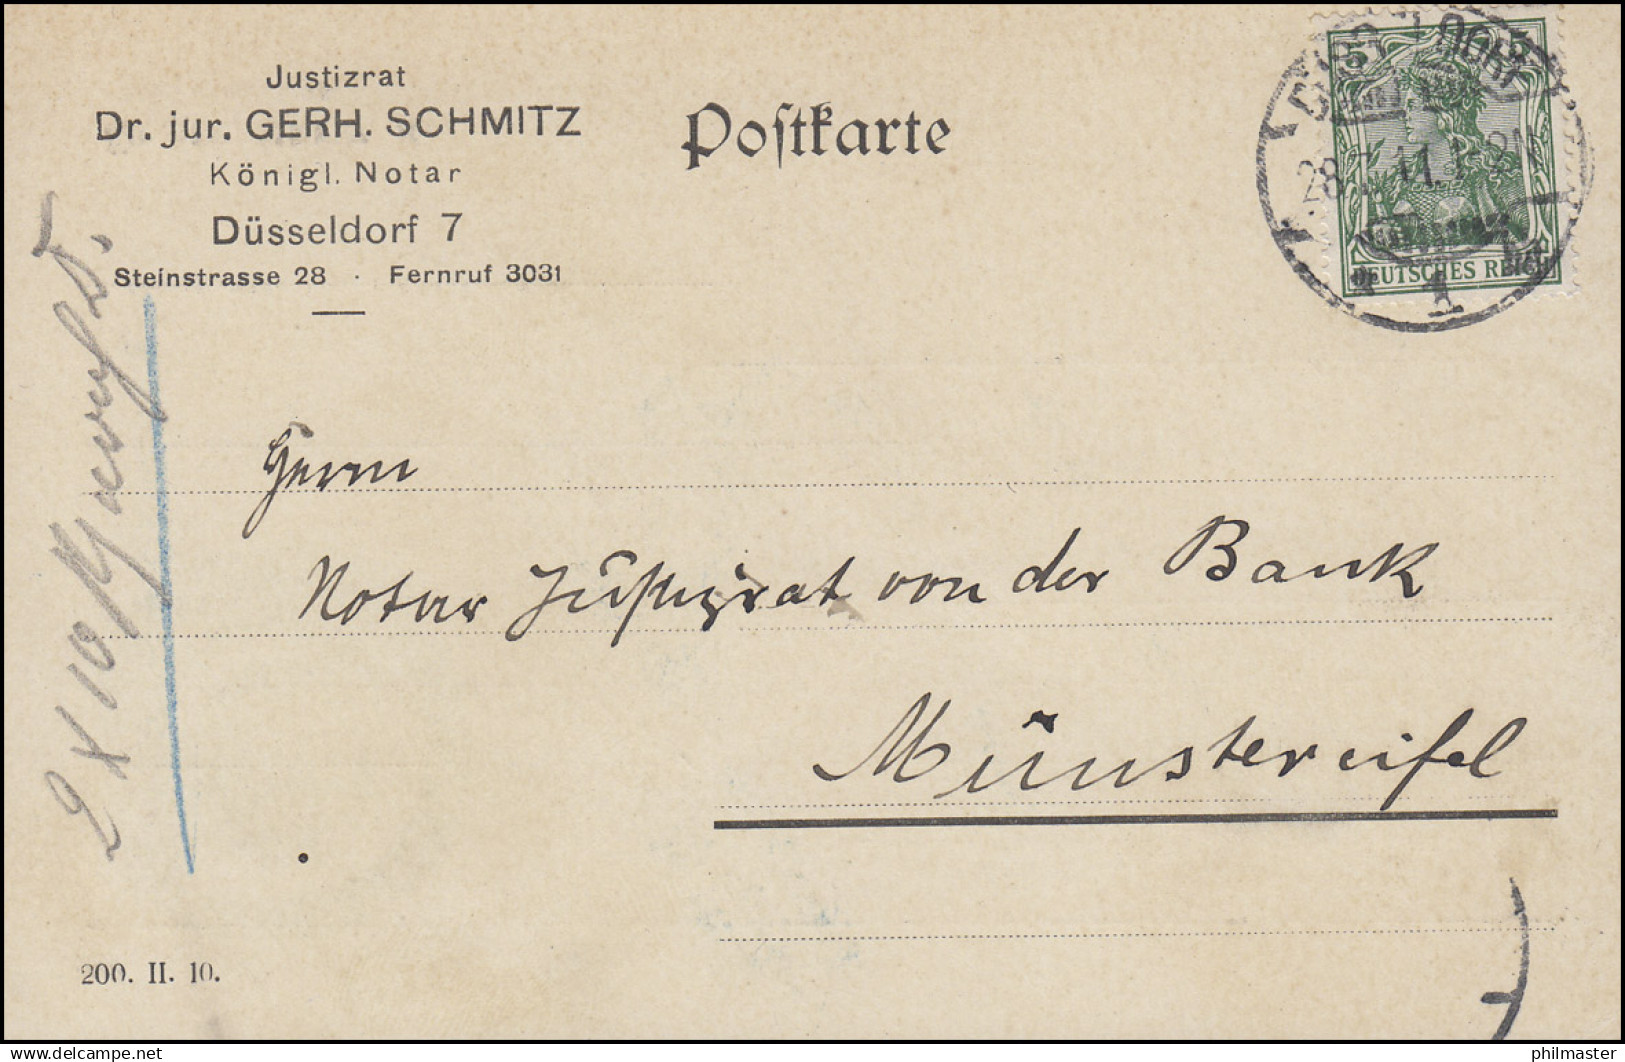 Justizrat
Dr. jur. GERH. SCHMITZ
Königl. Notar
Düsseldorf 7
Steinstrasse 28 · Fernruf 3031
Poſtkarte
5 5
DEUTSCHES REICH
28.7.11.
1
Herrn
Notar Justizrat von der Bank
Münstereifel
2 X 10
200. II. 10.
www.delcampe.net
philmaster